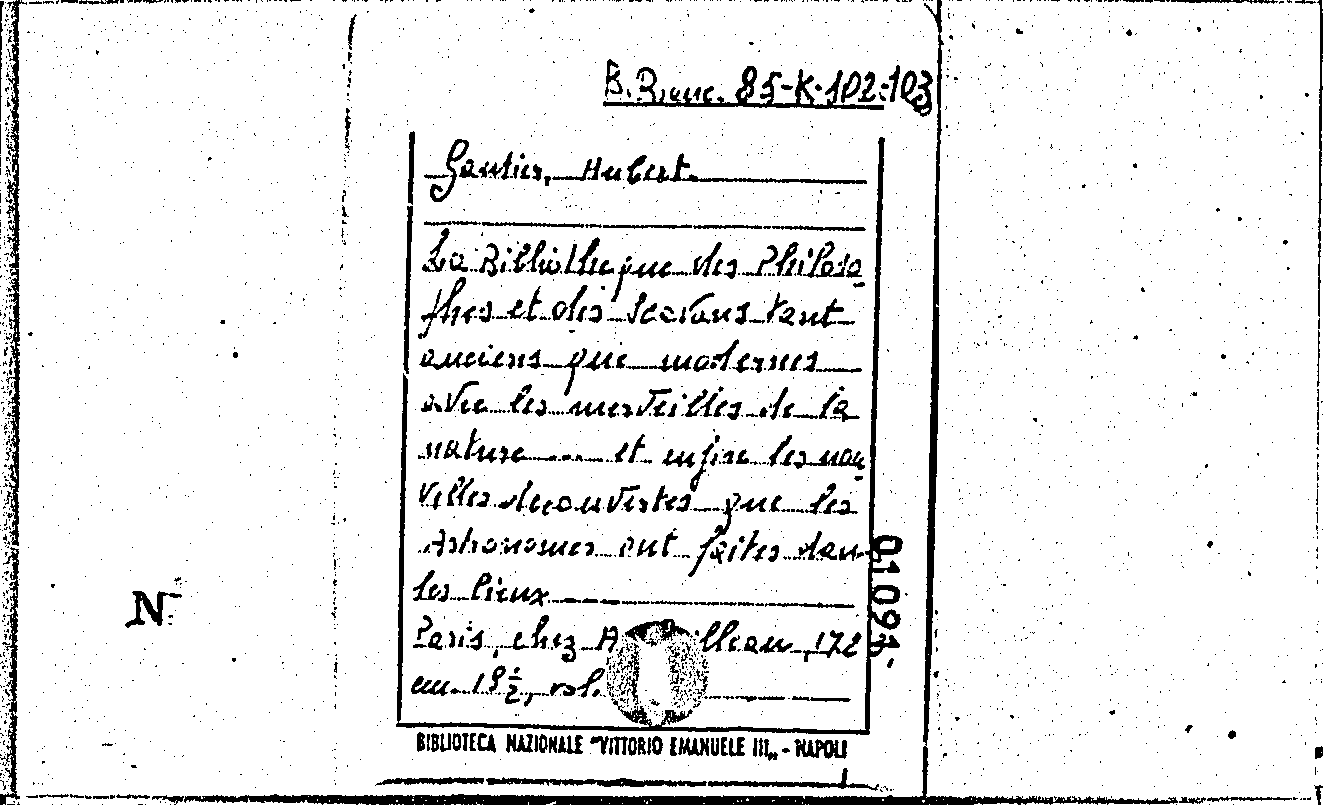 B. Branc. 85-K-102-103
Gautier, Hubert.
La Bibliotheque des Philoso
phes et des Scavans tant
anciens que modernes
avec les merveilles de la
nature ... et enfin les nou
velles decouvertes que les
Astronomes ont faites dans
les lieux
Paris, chez A lleau, 172
cm. 19½, vol.
BIBLIOTECA NAZIONALE "VITTORIO EMANUELE III„ - NAPOLI
N